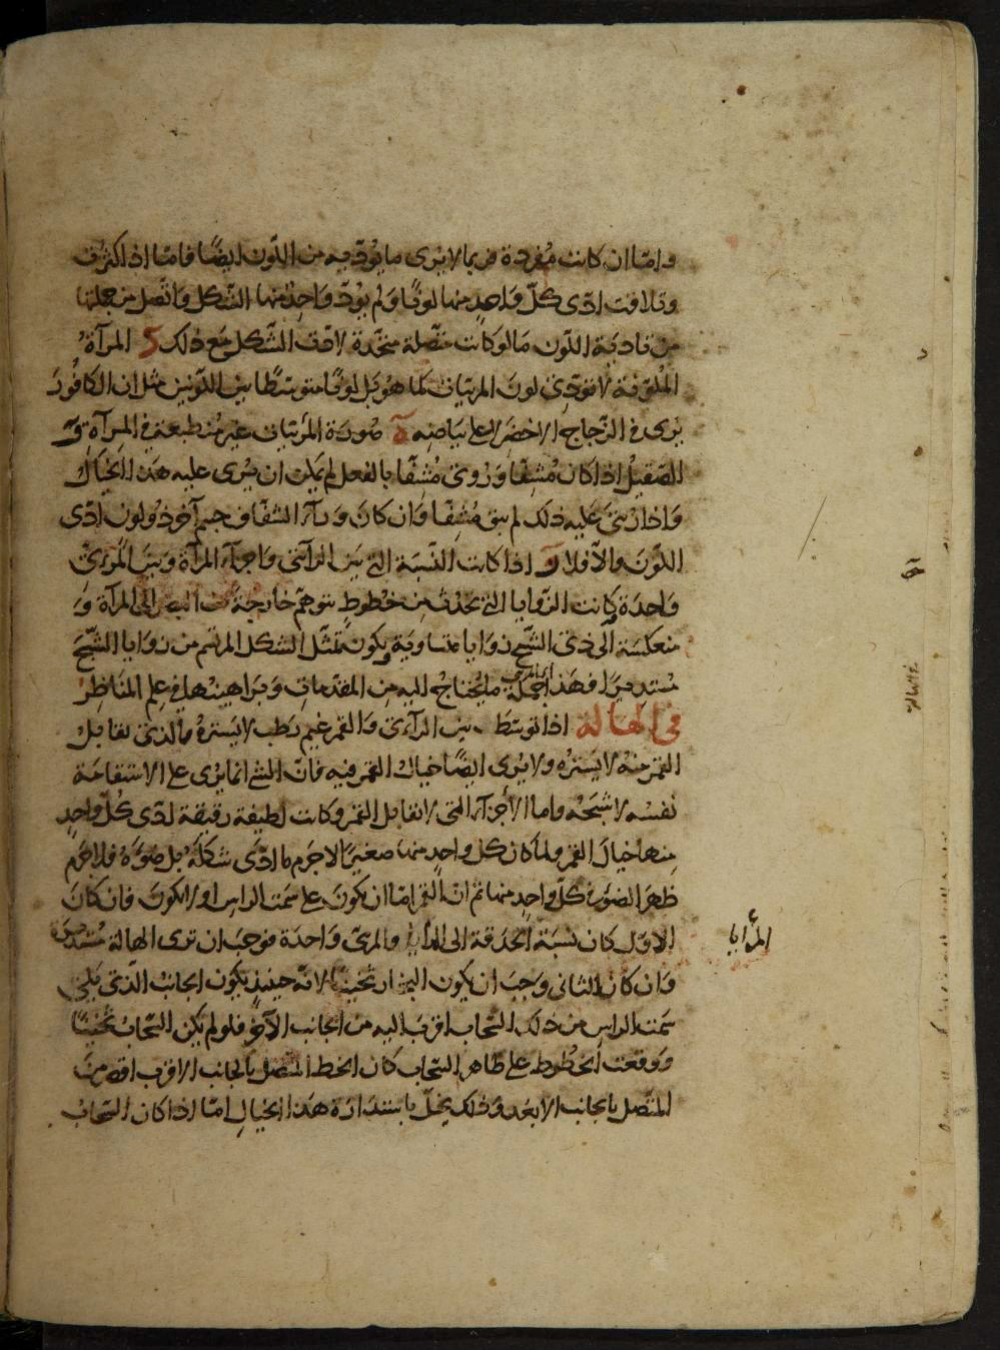 واما ان كانت مُفردة فربما لا يُرى ما يؤدّيه من اللّون ايضًا فامّا اذا كثرت
وتلاقت ادّى كلّ وَاحدٍ منها لونًا وَلم يؤدّ وَاحدٌ منها الشكل وَاتّصل من جملتها
من تادية اللّون مَا لو كانت متّصلة متّحدة لادّت الشّكل مَع ذلك المرآة
الملوّنة لا تؤدّى لونَ المرئيات كما هو بَل لونًا متوسّطًا بين اللّونين مثل ان الكافُورَ
يرى فى الزجاج الاخضَر لا على بَياضِه صُورَة المرئيات غير مُنطبعة فى المِرآة
الصّقيلُ اذا كان مُشفًّا وَرُوىَ مُشِفًّا بالفعل لم يمكن ان يُرى عليه هَذا الخيَال
وَاذا رُئىَ عَليه ذلك لم يبق مُشِفًّا وَان كانَ وَرآء الشفّاف جسم آخر ذُو لون ادّى
اللّونَ والّا فلا وَ اذا كانت النّسبَة التى بَين الرآئى وَاجزآء المرآة وَبَين المَرئىّ
وَاحدَة وَكانت الزّوايا التى تحدث من خطوطٍ تتوهّم خارجةً من البصَر الى المرآة وَ
منعكسَة الى ذى الشَّبَح زوَايا متساويَة وَيكون تمثّل الشكل المرتسم من زوَايا الشّبَح
مُستديرًا فهَذا جملة ما يُحتاجُ اليه من المقدّمات وَبَراهينُها فى عِلم المنَاظِر
فى الهالة اذا توسّطَ بين الرآءى وَالقمر غيم رَطب لا يَسترهُ فالذى يقابل
القمر منهُ لا يَسترُه ولا يُرى ايضًا خيالُ القمر فيه فانّ الشئ انما يُرى على الاستقامَة
نفسُه لا شَبَحُه وَاما الأَجزآء التى لا تقابل القمر وَكانت لطيفة رَقيقة ادّى كُلّ وَاحدٍ
مِنها خيالَ القمر ولمّا كان كل واحدٍ منها صَغيرًا لا جرَم ما ادّى شكلَهُ بل ضوءَهُ فلا جَرَم
ظهَرَ الضوءُ فى كلّ واحدٍ منها ثم انّ القمر امّا ان يكونَ على سَمت الراس او لا يكون فان كانَ
الاوّل كان نسبَة الحدَقة الى المرايا والمرئىّ وَاحدَة فوجبَ ان ترى الهالة مُستديرَة
المرَايا
وَان كانَ الثانى وَجبَ ان يكون البخار ثخينًا لانّه حينئذٍ يكون الجانبُ الّذى يَلى
سَمت الراس من ذلك السّحاب اقرَبَ اليه من الجانب الآخر فلو لم يكن السّحابُ ثخينًا
وَوقعَت الخطُوط على ظَاهر السّحاب كان الخط المتّصل بالجانب الاقرب اقصرَ منَ
المتّصل بالجانب الابعَد وَذلك يخلّ باستدارَة هَذا الخيال امّا اذا كان السّحابُ